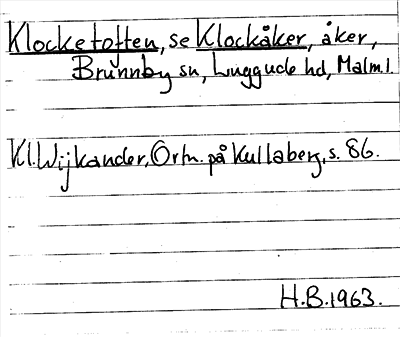 Klocketoften, se Klockåker, åker,
Brunnby sn, Luggude hd, Malm.l.
Kl. Wijkander, Ortn. på Kullaberg, s. 86.
H.B. 1963.